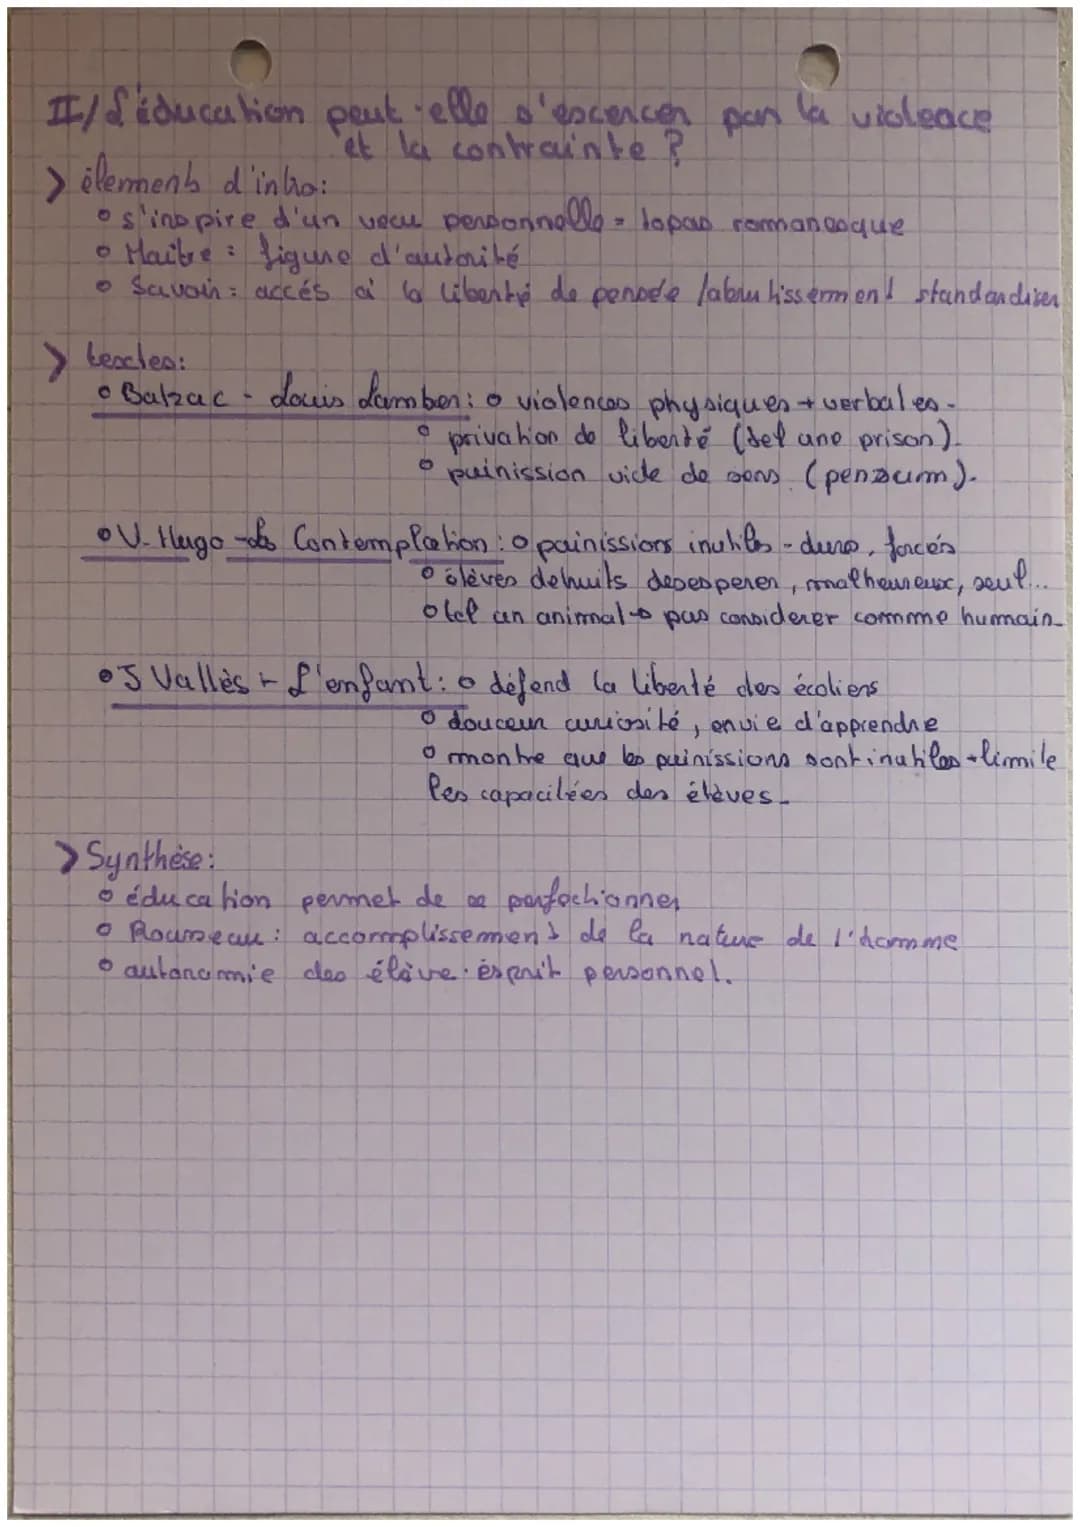 II/ L'éducation peut-elle s'escercer par la violence
et la contrainte ?
> élements d'intro:
o s'inspire d'un vecu personnelle = topas romanesque
o Maître : figure d'autorité
o Savoir : accés à la liberté de pensée /abrutissement standardiser
> textes:
o Balzac - Louis Lamber: o violences physiques + verbales -
o privation de liberté (tel une prison).
o puinission vide de sens (penzum).
o V. Hugo - Les Contemplation : o puinissions inutiles - dures, forcés
o élèves detruits desesperer, malheureux, seul...
o tel un animal → pas considerer comme humain
o J Vallès - L'enfant: o défend la liberté des écoliers
o douceur curiosité, envie d'apprendre
o montre que les puinissions sont inutiles + limite
les capacitées des élèves.
> Synthèse:
o éducation permet de se perfectionner
o Rousseau : accomplissement de la nature de l'homme
o autonomie des élève. ésprit personnel.